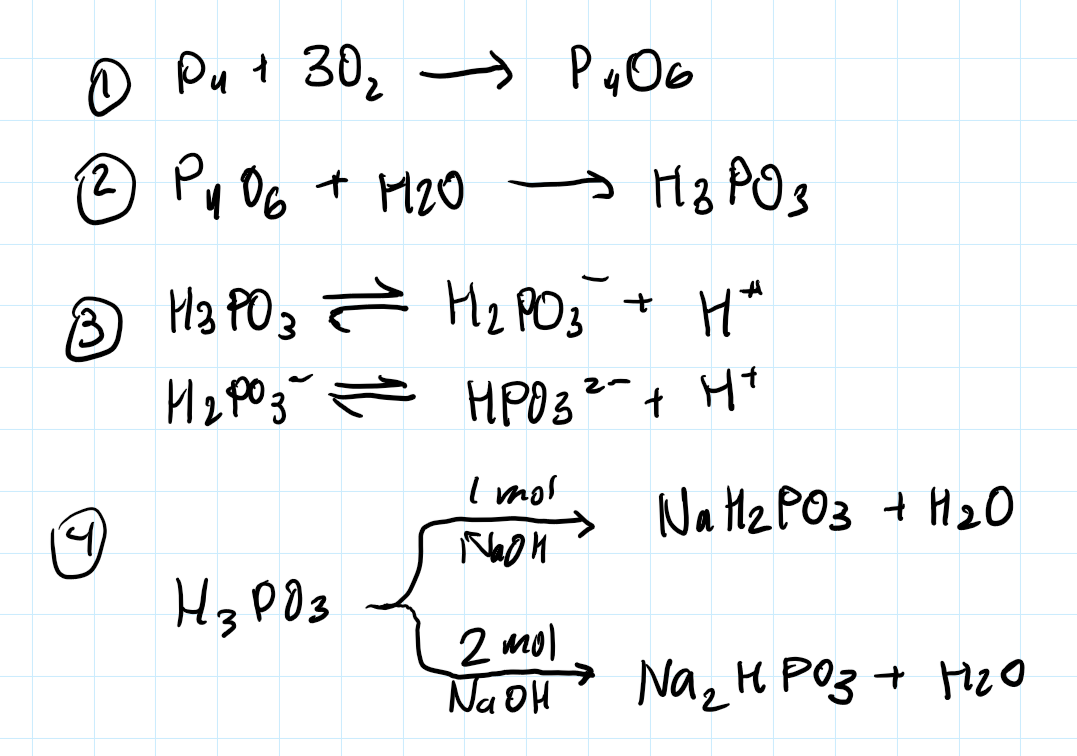 ① P₄ + 3O₂ ⟶ P₄O₆
② P₄O₆ + H2O ⟶ H₃PO₃
③ H₃PO₃ ⇌ H₂PO₃⁻ + H⁺
H₂PO₃⁻ ⇌ HPO₃²⁻ + H⁺
④ H₃PO₃
1 mol
NaOH
NaH₂PO₃ + H₂O
2 mol
NaOH
Na₂HPO₃ + H₂O